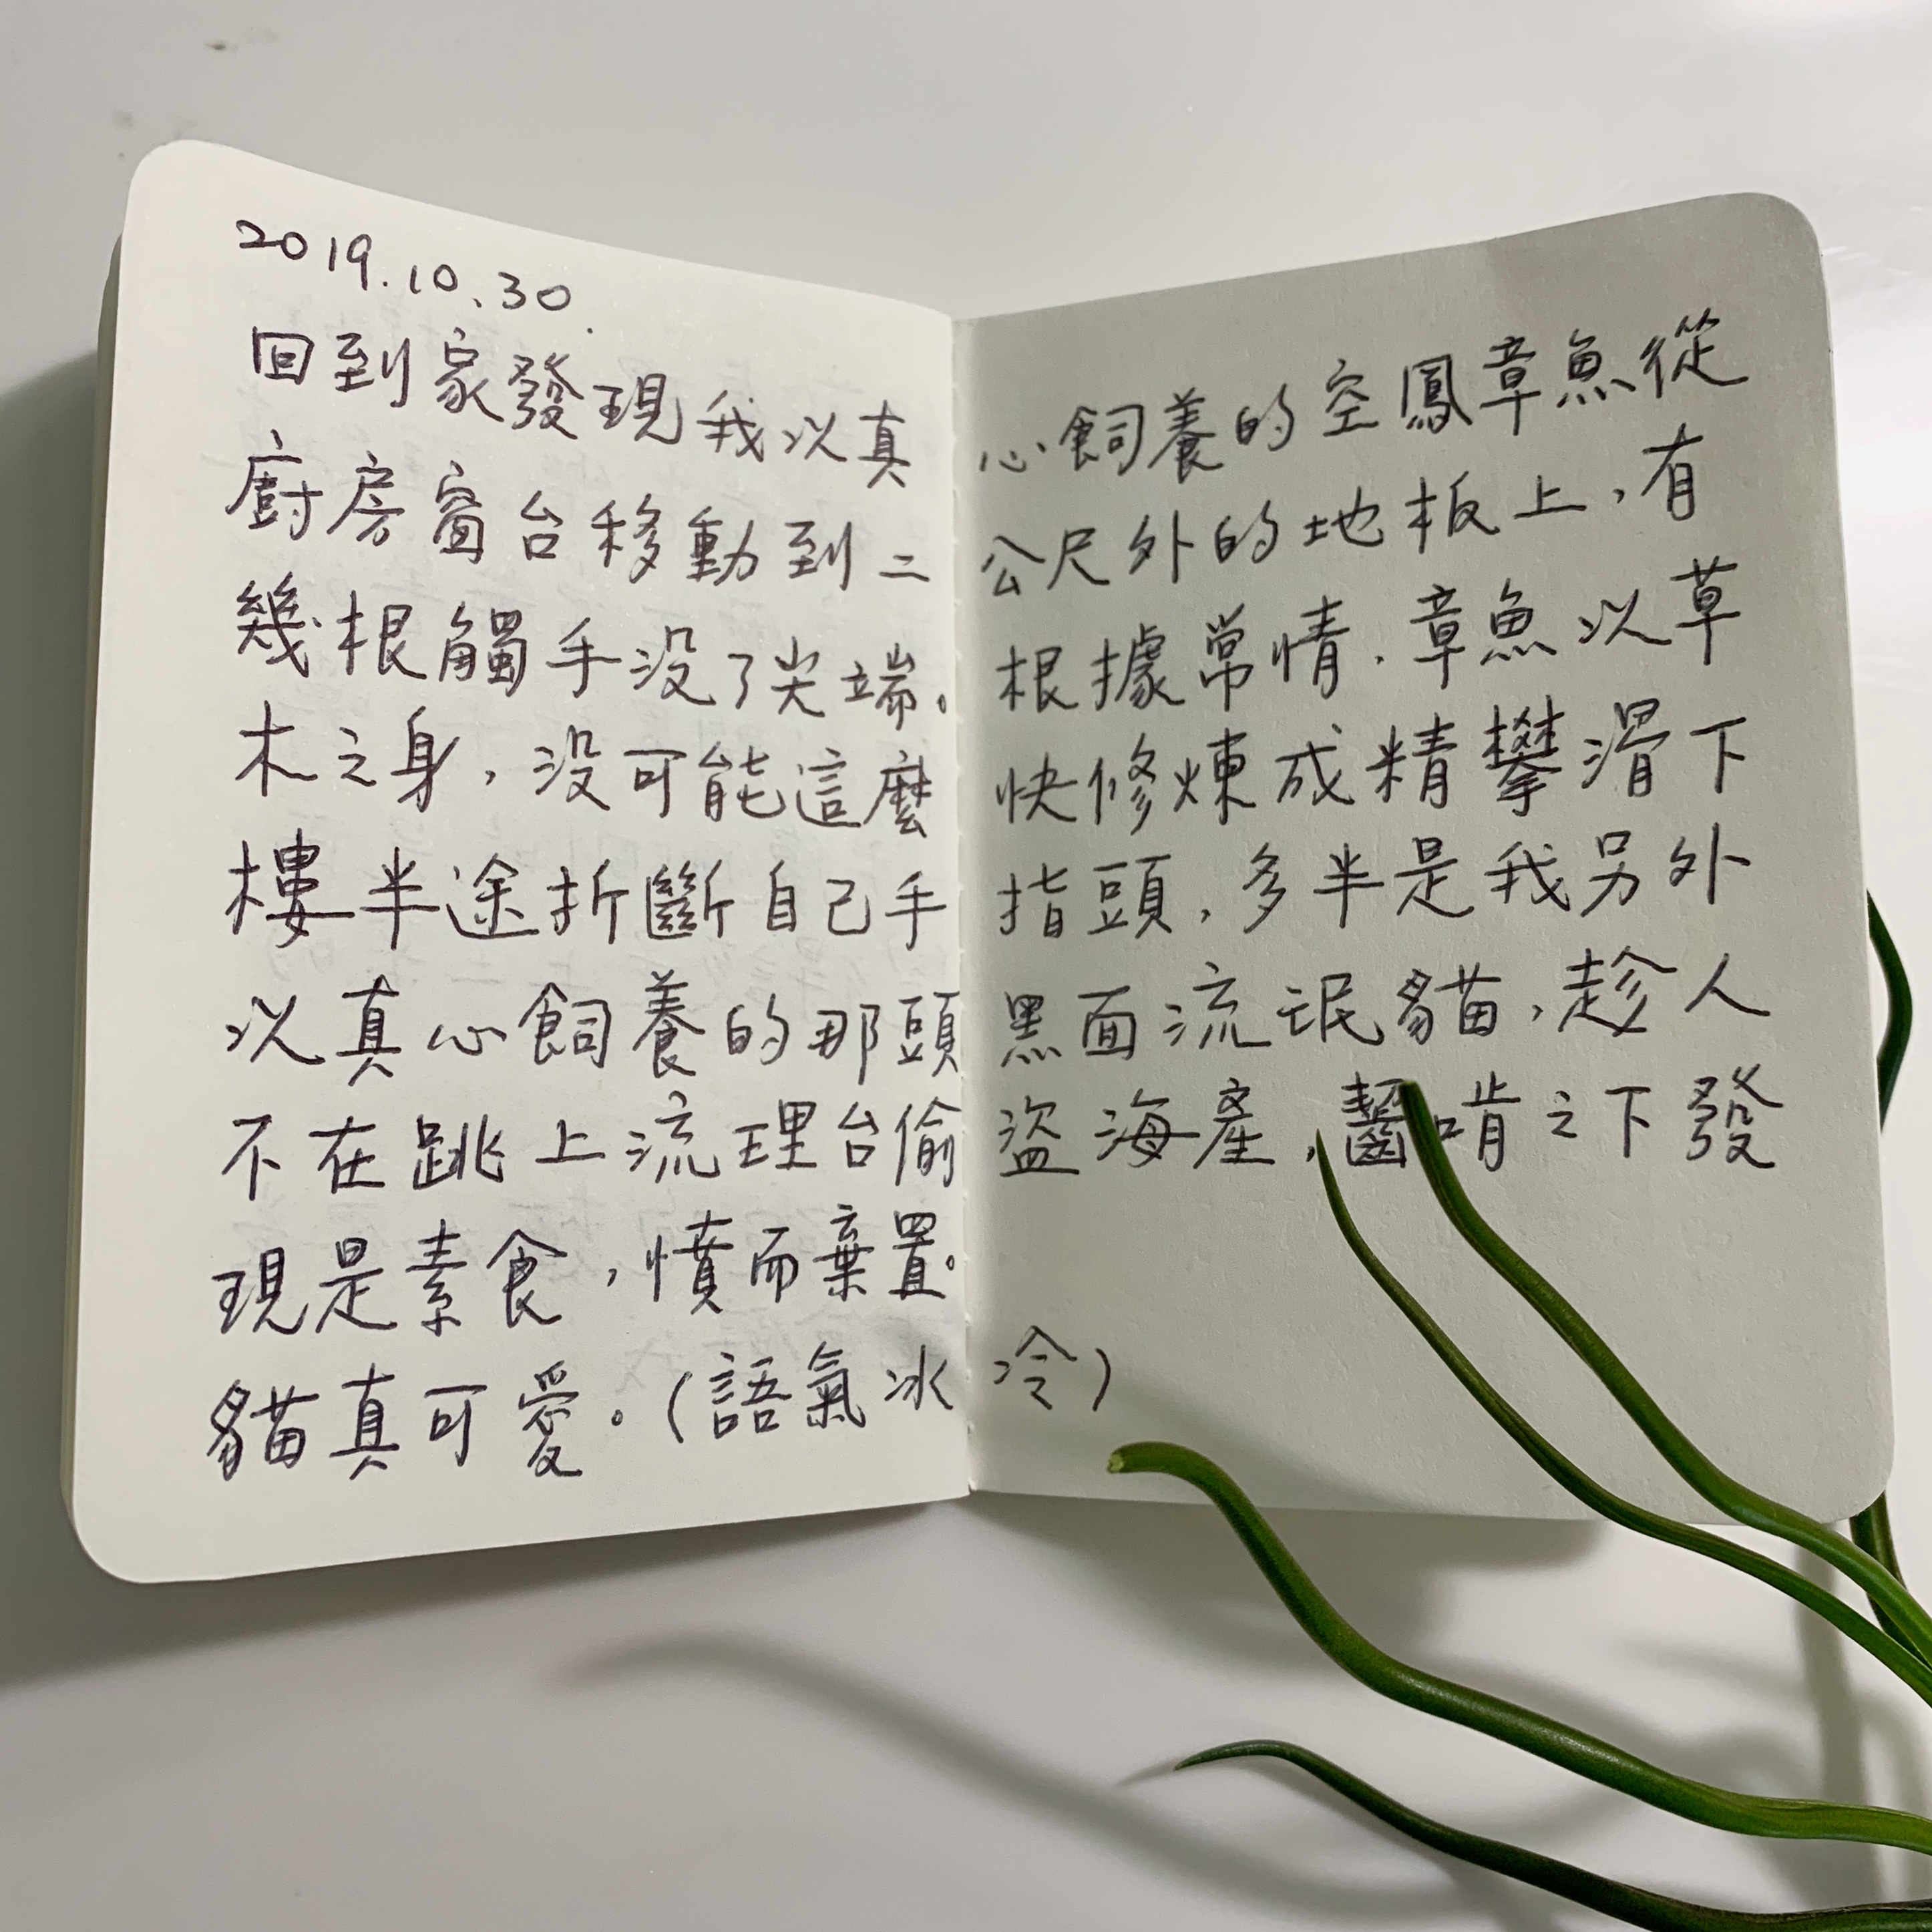 2019.10.30.
回到家發現我以真心飼養的空鳳章魚從
廚房窗台移動到二公尺外的地板上,有
幾根觸手没了尖端。根據常情,章魚以草
木之身,没可能這麼快修煉成精攀滑下
樓半途折斷自己手指頭,多半是我另外
以真心飼養的那頭黑面流氓貓,趁人
不在跳上流理台偷盜海產,齧啃之下發
現是素食,憤而棄置。
貓真可愛。(語氣冰冷)